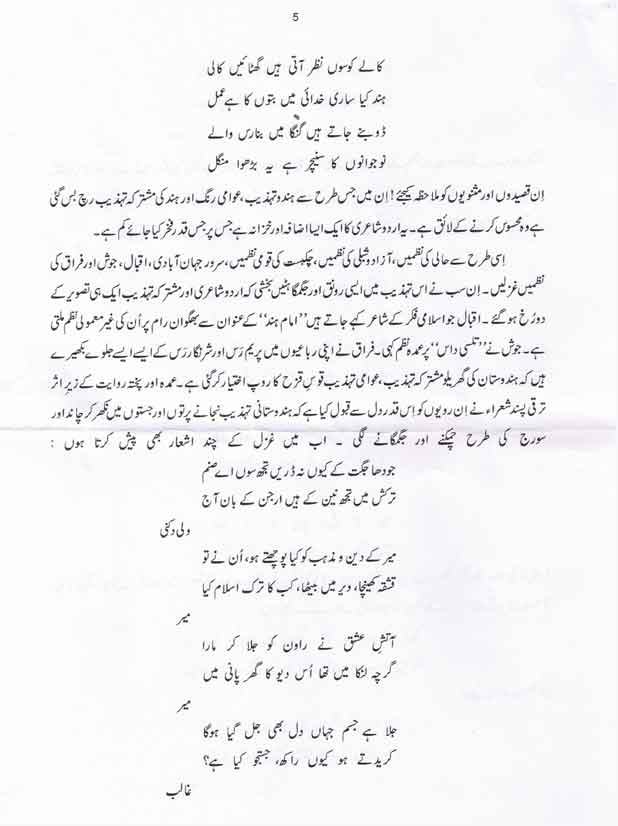 5
کالے کوسوں نظر آتی ہیں گھٹائیں کالی
ہند کیا ساری خدائی میں بتوں کا ہے عمل
ڈوبنے جاتے ہیں گنگا میں بنارس والے
نوجوانوں کا سنیچر ہے یہ بڑھوا منگل
اِن قصیدوں اور مثنویوں کو ملاحظہ کیجئے! اِن میں جس طرح سے ہندو تہذیب، عوامی رنگ اور ہند کی مشترکہ تہذیب رچ بس گئی
ہے وہ محسوس کرنے کے لائق ہے۔ یہ اردو شاعری کا ایک ایسا اضافہ اور خزانہ ہے جس پر جس قدر فخر کیا جائے کم ہے۔
اِسی طرح سے حالی کی نظمیں، آزاد و شبلی کی نظمیں، چکبست کی قومی نظمیں، سرور جہان آبادی، اقبال، جوش اور فراق کی
نظمیں غزلیں۔ اِن سب نے اس تہذیب میں ایسی رونق اور جگمگاہٹیں بخشی کہ اردو شاعری اور مشترکہ تہذیب ایک ہی تصویر کے
دو رُخ ہو گئے۔ اقبال جو اسلامی فکر کے شاعر کہے جاتے ہیں ”امام ہند“ کے عنوان سے بھگوان رام پر اُن کی غیر معمولی نظم ملتی
ہے۔ جوش نے ”تلسی داس“ پر عمدہ نظم کہی۔ فراق نے اپنی رباعیوں میں پریم رَس اور شرنگار رَس کے ایسے ایسے جلوے بکھیرے
ہیں کہ ہندوستان کی گھریلو مشترکہ تہذیب، عوامی تہذیب قوسِ قزح کا روپ اختیار کر گئی ہے۔ عمدہ اور پختہ روایت کے زیرِ اثر
ترقی پسند شعراء نے اِن رویوں کو اِس قدر دل سے قبول کیا ہے کہ ہندوستانی تہذیب نجانے پرتوں اور جستوں میں نکھر کر چاند اور
سورج کی طرح چمکنے اور جگمگانے لگی ۔ اب میں غزل کے چند اشعار بھی پیش کرتا ہوں :
جودھا جگت کے کیوں نہ ڈریں تجھ سوں اے صنم
ترکش میں تجھ نین کے ہیں ارجن کے بان آج
ولی دکنی
میر کے دین و مذہب کو کیا پوچھتے ہو، اُن نے تو
قشقہ کھینچا، دیر میں بیٹھا، کب کا ترک اسلام کیا
میر
آتشِ عشق نے راون کو جلا کر مارا
گرچہ لنکا میں تھا اُس دیو کا گھر پانی میں
میر
جلا ہے جسم جہاں دل بھی جل گیا ہوگا
کریدتے ہو کیوں راکھ، جستجو کیا ہے؟
غالب